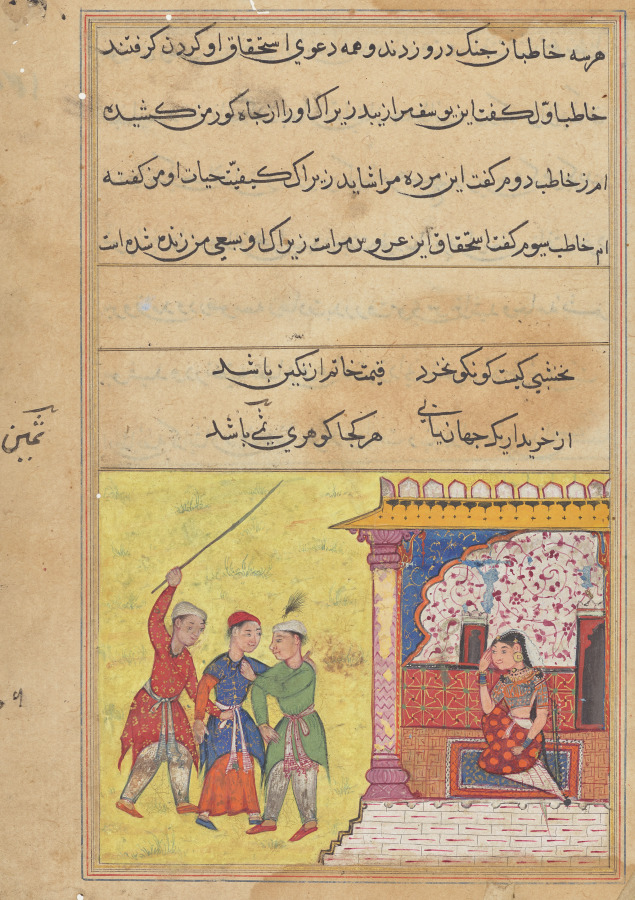 هر سه خاطبان جنک در وزدند و همه دعوي استحقاق او کردن کرفتند
خاطب اوّل کفت این یوسف مرا زیبد زیراک او را از جاه کور من کشیده
ام ز خاطب دوم کفت این مرده مرا شاید زیراک کیفیّت حیات او من کفته
ام خاطب سیوم کفت استحقاق این عروس مراست زیراک او بسعي من زنده شده است
نخشبي کیت کو نکو نخرد قیمت خاتم از نکین باشد
از خریدار یک جهان یابي هر کجا کوهري ثمین باشد
ثمین